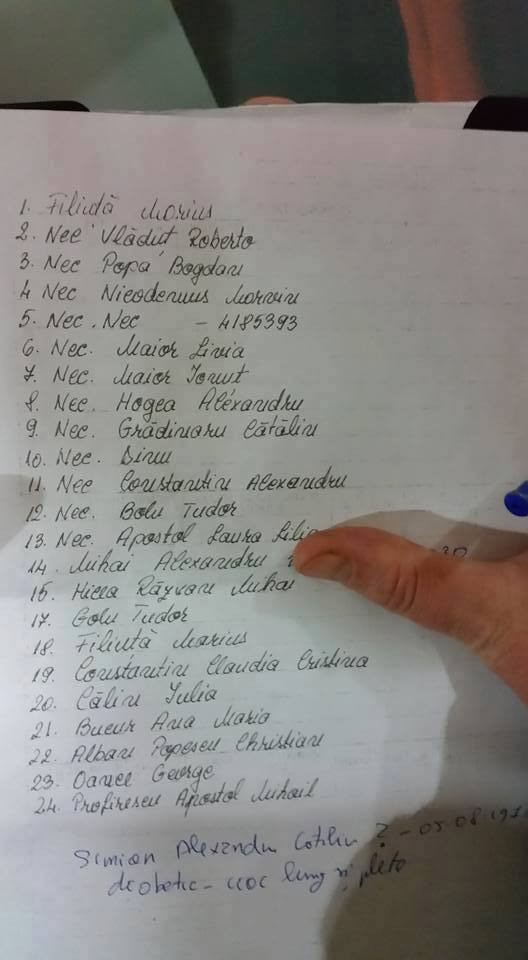 1. Filiută Marius
2. Nec Vlăduț Roberto
3. Nec Popa Bogdan
4 Nec Nicodemus Marvin
5. Nec. Nec - 4185393
6. Nec. Maior Livia
7. Nec. Maior Ionut
8. Nec. Hogea Alexandru
9. Nec. Grădinaru Cătălin
10. Nec. Dinu
11. Nec Constantin Alexandru
12. Nec. Bolu Tudor
13. Nec. Apostol Laura
14. Mihai Alexandru
15. Răzvan Mihai
17. Golu Tudor
18. Filiută Marius
19. Constantin Claudia Cristina
20. Călin Iulia
21. Bucur Ana Maria
22. Alban Popescu Christian
23. Oance George
24. Profirescu Apostol Mihail
Simion Alexandru ? - 05.08.
- lung